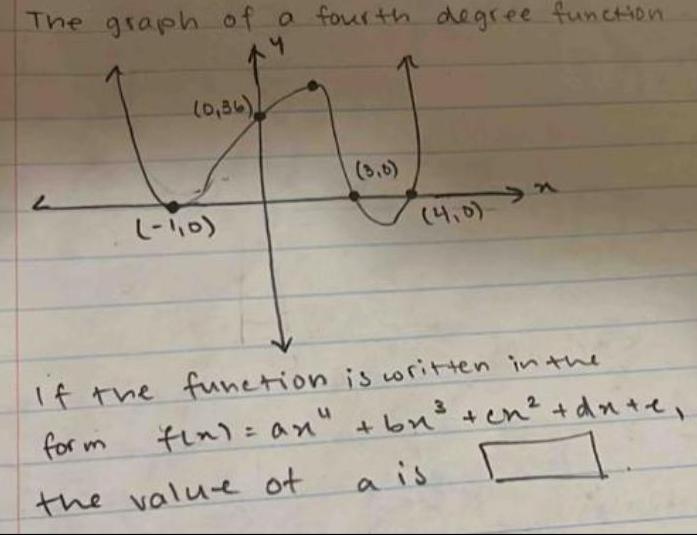 The graph of a fourth degree function
y
(0,36)
(3,0)
x
(-1,0)
(4,0)
If the function is written in the
form f(x) = ax⁴ + bx³ + cx² + dx + e,
the value of a is